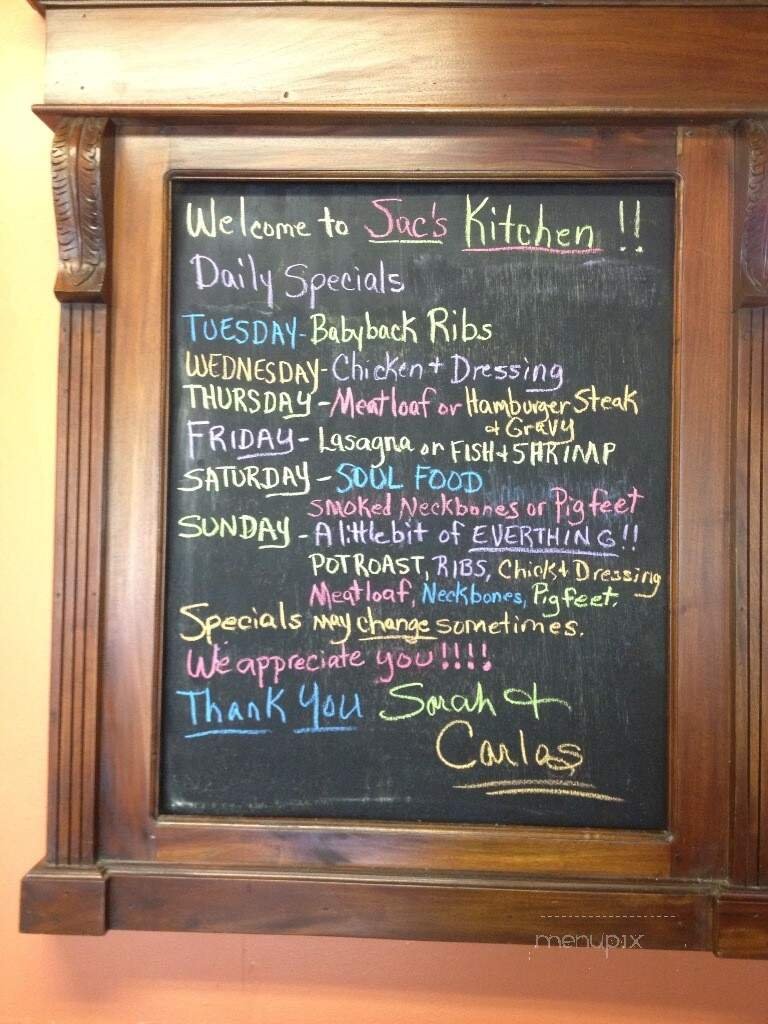 Welcome to Jac's Kitchen !!
Daily Specials
TUESDAY - Babyback Ribs
WEDNESDAY - Chicken + Dressing
THURSDAY - Meatloaf or Hamburger Steak
+ Gravy
FRIDAY - Lasagna or FISH + SHRIMP
SATURDAY - SOUL FOOD
SMOKED Neckbones or Pigfeet
SUNDAY - A little bit of EVERTHING!!
POTROAST, RIBS, Chick + Dressing
Meatloaf, Neckbones, Pigfeet.
Specials may change sometimes.
We appreciate you!!!!
Thank You Sarah +
Carlos
menupix